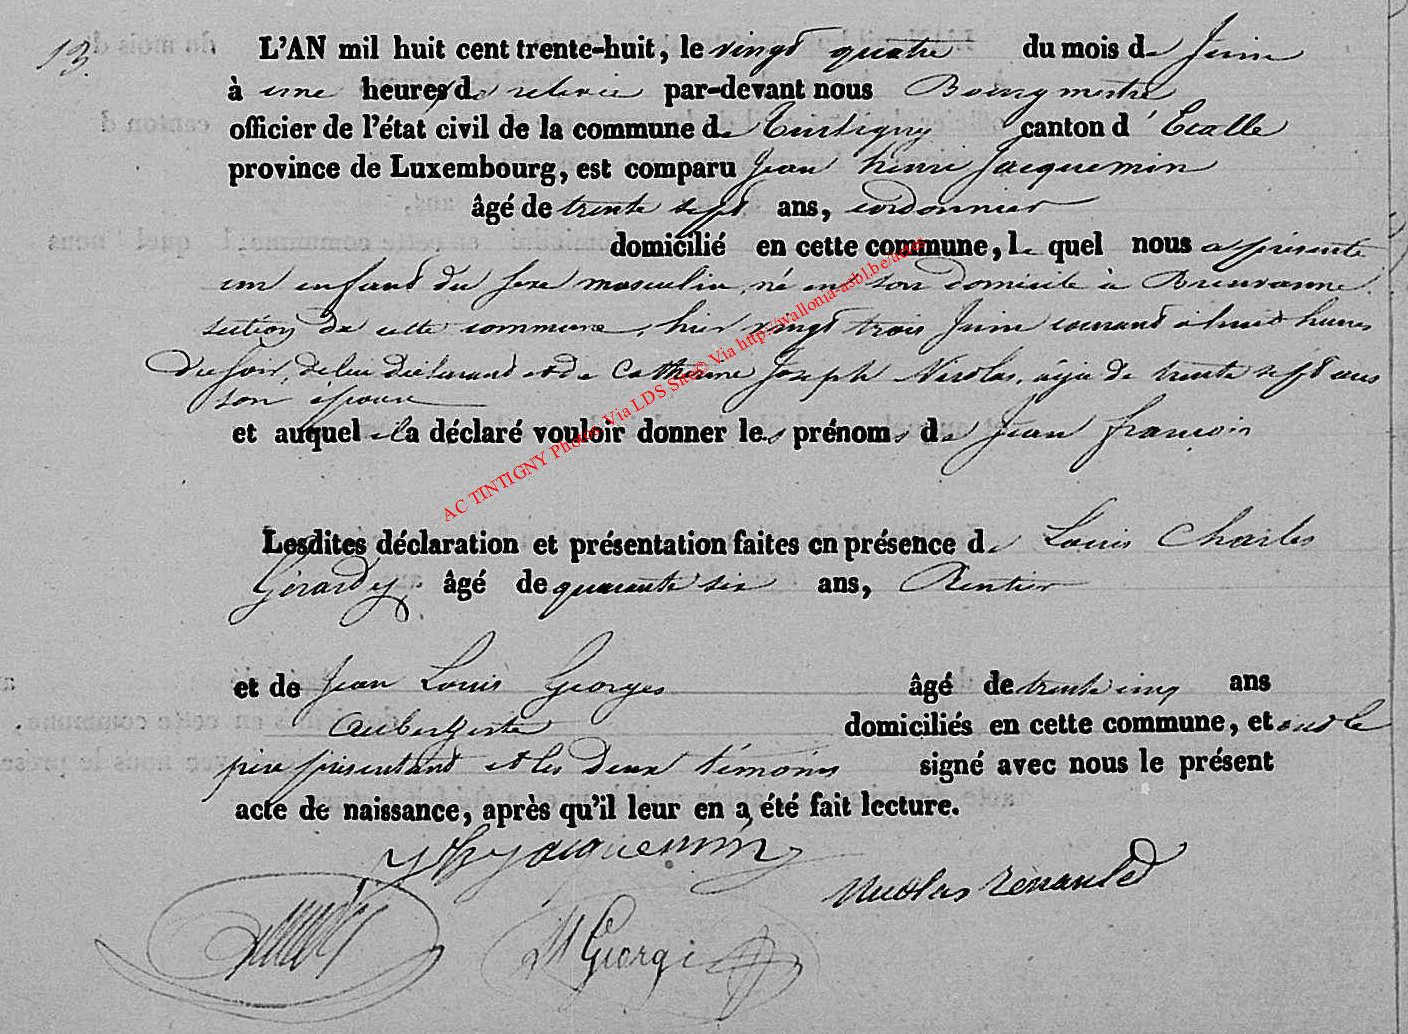 13.
L'AN mil huit cent trente-huit, le vingt quatre du mois de Juin
à une heures de relevée par-devant nous Bourgmestre
officier de l'état civil de la commune de Tintigny canton d'Etalle
province de Luxembourg, est comparu Jean henri Jacquemin
âgé de trente sept ans, cordonnier
domicilié en cette commune, le quel nous a présenté
un enfant du sexe masculin, né en son domicile à Breuvanne
section de cette commune, hier vingt trois Juin courant à huit heures
du soir, de lui déclarant et de Catherine Joseph Nicolas, agée de trente sept ans
son épouse
et auquel il a déclaré vouloir donner les prénoms de Jean francois
Lesdites déclaration et présentation faites en présence de Louis Charles
Gérardy, âgé de quarante six ans, Rentier
et de Jean Louis Georges âgé de trente cinq ans
aubergiste domiciliés en cette commune, et ont le
père présentant et les deux témoins signé avec nous le présent
acte de naissance, après qu'il leur en a été fait lecture.
JhJacquemin
Nicolas Renauld
Georges
AC TINTIGNY Photos Via LDS Site© Via http://wallonia-asbl.be/actes